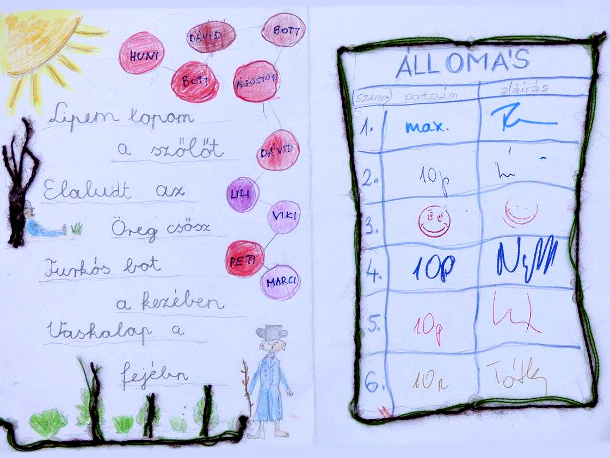 HUNI
DÁVID
BOTI
BOTI
ÁGOSTON
DÁVID
LILI
VIKI
PETI
MARCI
Lipem lopom
a szőlőt
Elaludt az
Öreg csősz
Furkós bot
a kezében
Vaskalap a
fejében
ÁLLOMÁS
szám pontszám aláírás
1. max.
2. 10p
3.
4. 10p
5. 10p
6. 10p